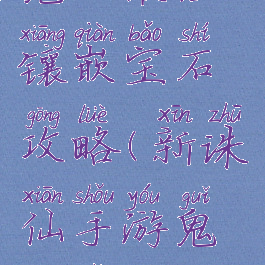 xiāng qiàn bǎo shí
镶嵌宝石
gōng lüè xīn zhū
攻略(新诛
xiān shǒu yóu guǐ
仙手游鬼